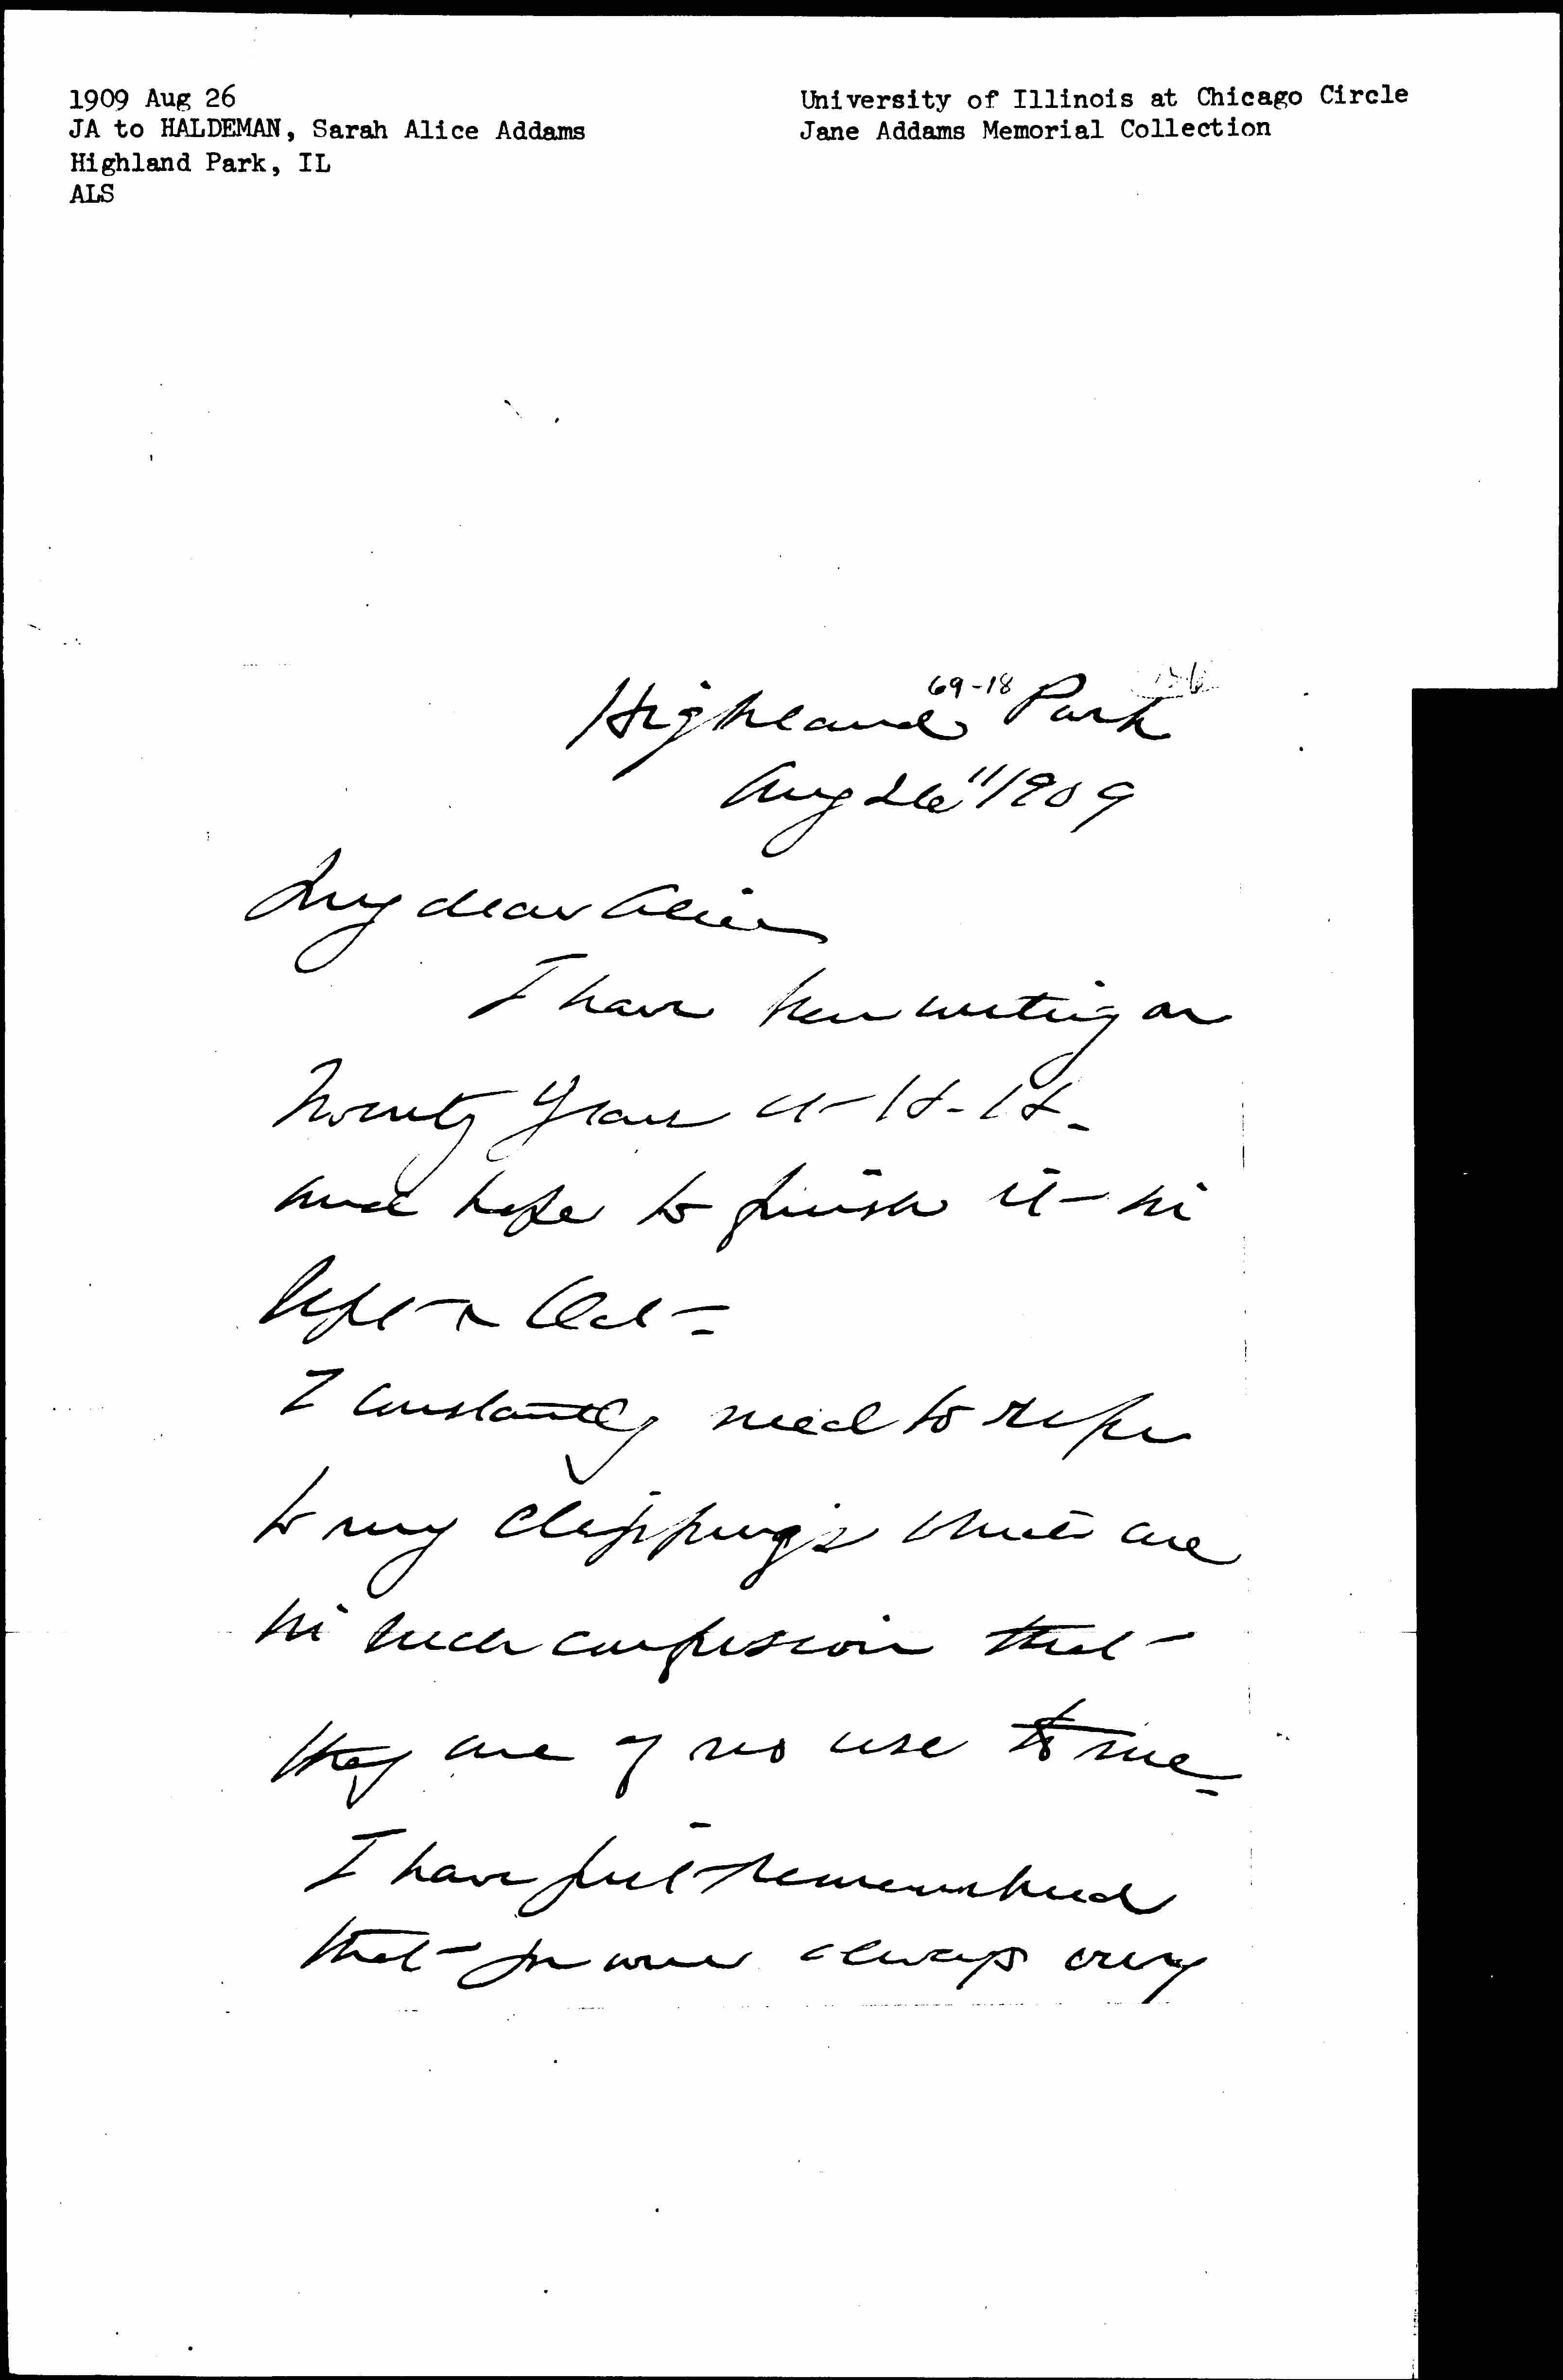 1909 Aug 26
JA to HALDEMAN, Sarah Alice Addams
Highland Park, IL
ALS
University of Illinois at Chicago Circle
Jane Addams Memorial Collection
69-18
Highland Park
Aug 26" 1909
My dear Alice
I have been writing on
Twenty Years at H-H-
and hope to finish it in
Sept & Oct-
I constantly need to refer
to my clippings which are
in such confusion that
they are of no use to me-
I have just remembered
that you were always very